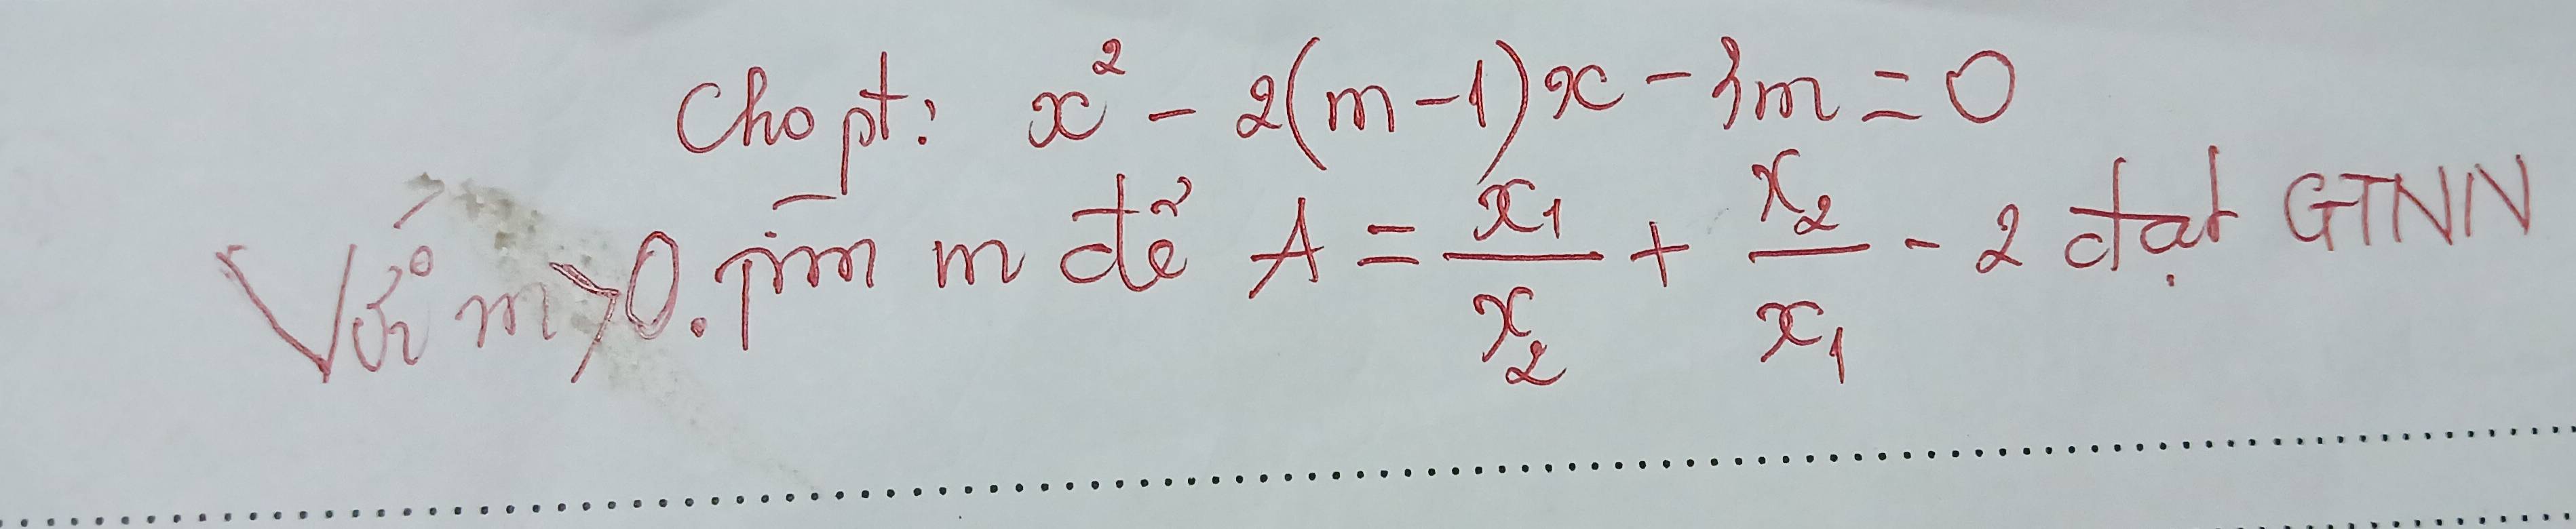 Cho pt: x² - 2(m-1)x - 3m = 0
Với m>0. Tìm m để A = x₁/x₂ + x₂/x₁ - 2 đạt GTNN